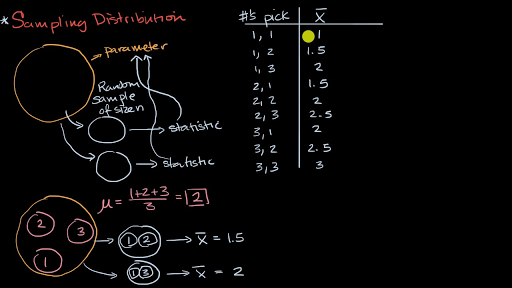 *Sampling Distribution
parameter
Random
sample
of size n
statistic
statistic
#'s pick x̄
1, 1 1
1, 2 1.5
1, 3 2
2, 1 1.5
2, 2 2
2, 3 2.5
3, 1 2
3, 2 2.5
3, 3 3
2 3 1
μ = (1+2+3)/3 = 2
1 2 x̄ = 1.5
1 3 x̄ = 2